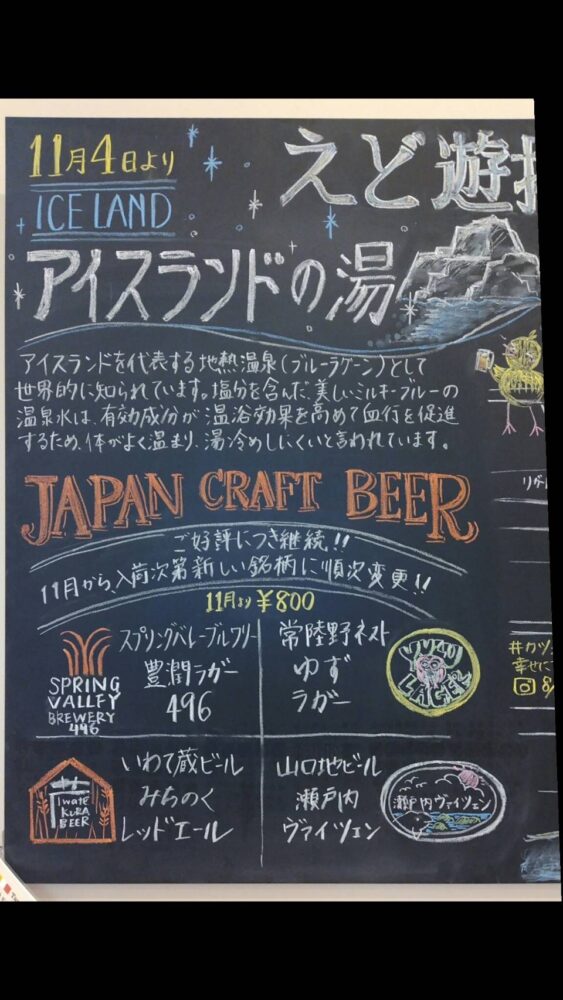 11月4日より
ICELAND
えど遊
アイスランドの湯
アイスランドを代表する地熱温泉(ブルーラグーン)として
世界的に知られています。塩分を含んだ、美しいミルキーブルーの
温泉水は、有効成分が温浴効果を高めて血行を促進
するため、体がよく温まり、湯冷めしにくいと言われています。
JAPAN CRAFT BEER
ご好評につき継続!!
11月から、入荷次第新しい銘柄に順次変更!!
11月より ¥800
SPRING
VALLEY
BREWERY
496
スプリングバレーブルワリー
豊潤ラガー
496
常陸野ネスト
ゆず
ラガー
YUZU
LAGER
Iwate
KURA
BEER
いわて蔵ビール
みちのく
レッドエール
山口地ビール
瀬戸内
ヴァイツェン
瀬戸内ヴァイツェン
#カツ
幸せに